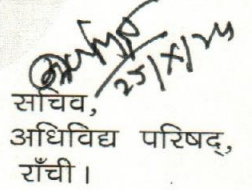 25/X/24
सचिव,
अधिविद्य परिषद्,
राँची।